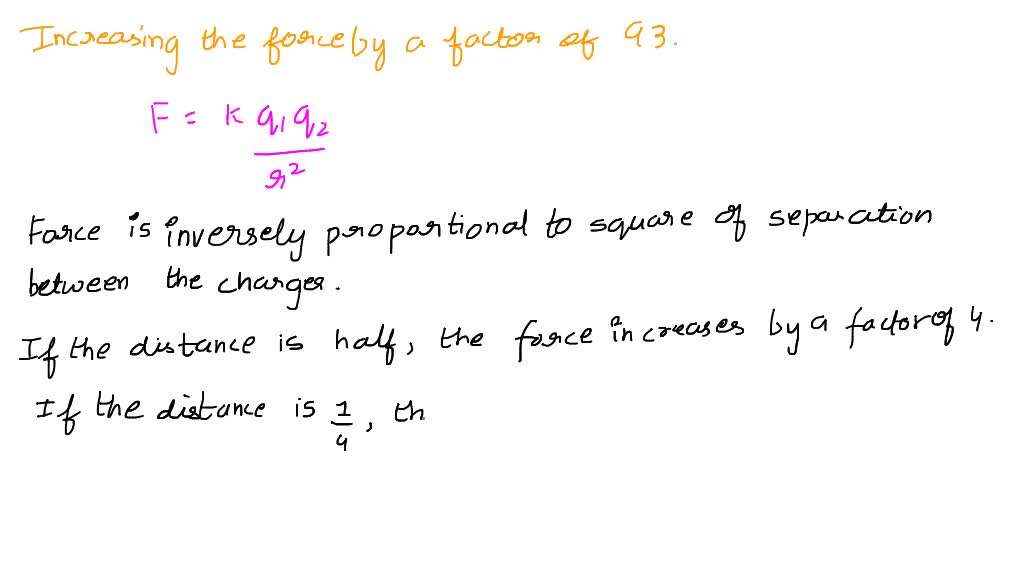 Increasing the force by a factor of 93.
F = K q₁q₂
r²
Force is inversely proportional to square of separation
between the charges.
If the distance is half, the force increases by a factor of 4.
If the distance is 1/4, th